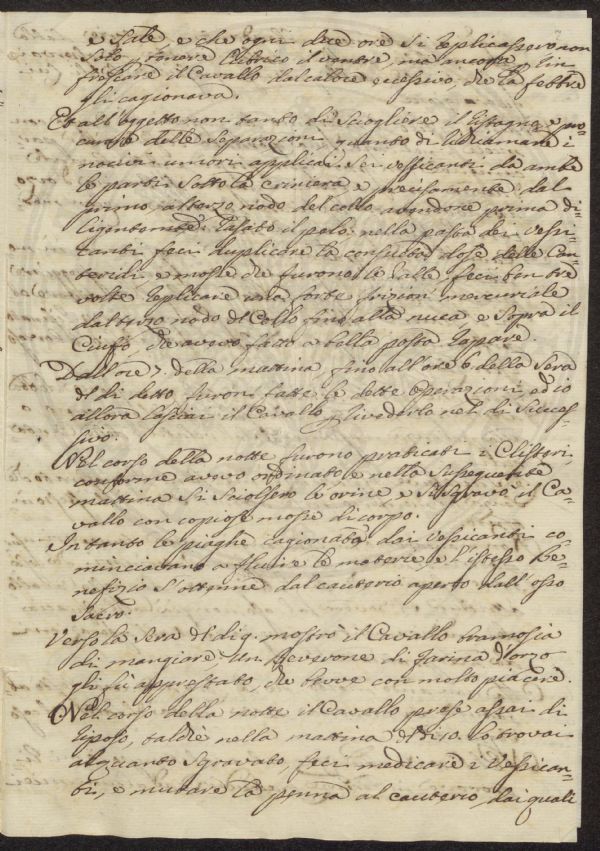 e Sale e che ogni due ore si replicassero non
solo p tenere lubrico il ventre, ma ancora p rin¬
frescare il Cavallo dal calore eccessivo, che la febbre
gli cagionava.
Et all'oggetto non tanto di sciogliere il ristagno, e pro¬
curare delle separazioni quanto di richiamare i
nocivi umori applicai sei vessicanti da ambe
le parti sotto la criniera e precisamente dal
primo, al terzo nodo del collo avendone prima di¬
ligentemte rasato il pelo, nella pasta dei vessi¬
canti feci duplicare la consueta dose delle Can¬
teridi, e mosse che furono le Galle feci ben tre
volte replicare una forte frizion mercuriale
dal terzo nodo del Collo fino alla nuca, e sopra il
Ciuffo che avevo fatto a bella posta rapare.
Dall'ore 7. della mattina fino all'ore 6 della Sera
del dì detto furon fatte le dette operazioni, ed io
allora lasciai il Cavallo p rivederlo nel dì succes¬
sivo.
Nel corso della notte furono praticati i Clisteri,
conforme avevo ordinato e nella susseguente
mattina si sciolsero le orine e si sgravò il Ca¬
vallo con copiose mosse di corpo.
Intanto le piaghe cagionate dai vessicanti co¬
minciavano a fluire le materie e l'istesso Be¬
nefizio s'ottenne dal cauterio aperto dall'osso
Sacro.
Verso la Sera del dì 9. mostrò il Cavallo bramosia
di mangiare, un Beverone di farina d'orzo
gli fù apprestato, che bevve con molto piacere.
Nel corso della notte il Cavallo prese assai di
riposo, talchè nella mattina del dì 10. lo trovai
alquanto sgravato, feci medicare i vessican¬
ti, e mutare la penna al cauterio, dai quali